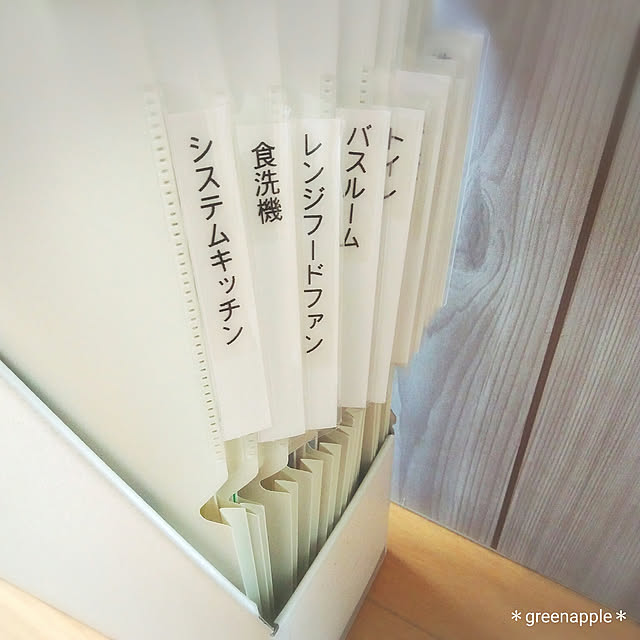 システムキッチン
食洗機
レンジフードファン
バスルーム
トイレ
＊greenapple＊